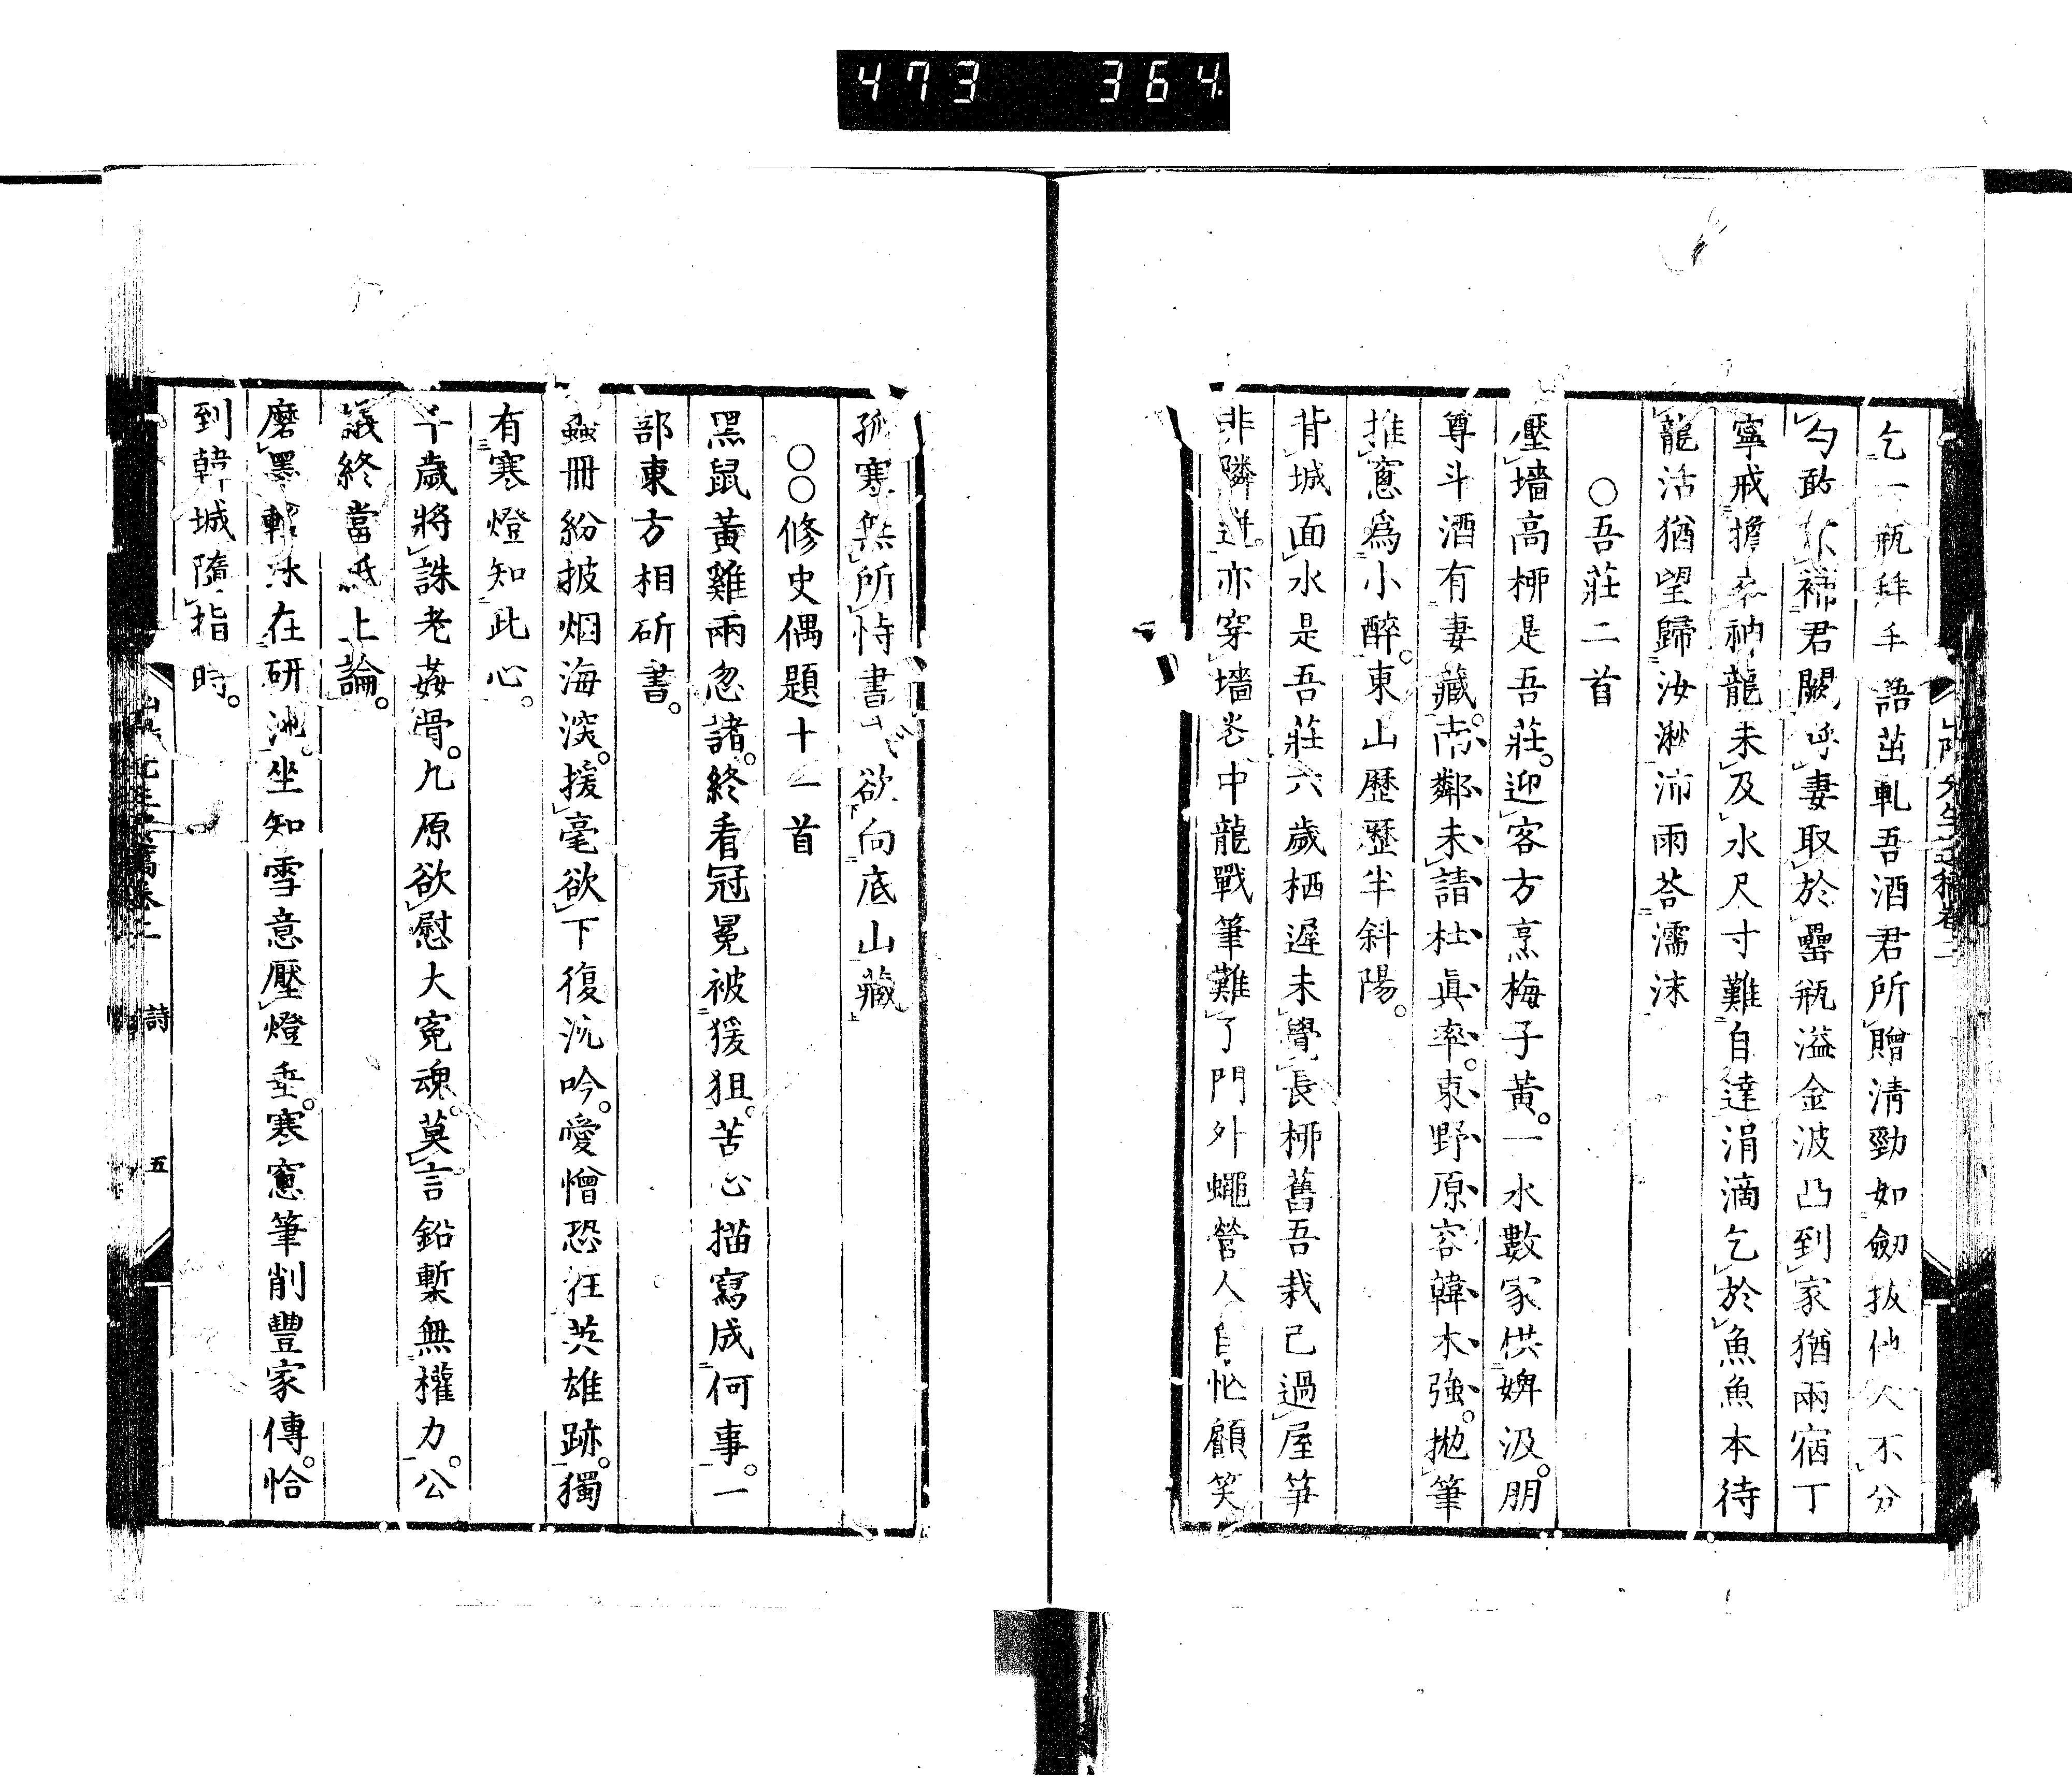 473 364
乞一瓶拜手語茁軋吾酒君所贈淸勁如劒拔仙人不分
勺敢補君闕呼妻取於罍瓶溢金波凸到家猶兩宿丁
寧戒擔衲龍未及水尺寸難自達涓滴乞於魚魚本待
龍活猶望歸汝湫沛雨荅濡沫
○吾莊二首
壓墻高栁是吾莊迎客方烹梅子黃一水數家供婢汲朋
尊斗酒有妻藏南鄰未請杜眞率東野原容韓木強拋筆
推窻爲小醉東山歷歷半斜陽
背城面水是吾莊六歲栖遲未覺長栁舊吾栽已過屋笋
非隣迸亦穿墻卷中龍戰筆難了門外蠅營人自忙顧笑
孤寒無所恃書欲向底山藏
○○修史偶題十一首
黑鼠黃雞兩忽諸終看冠冕被猨狙苦心描寫成何事一
部東方相斫書
蝨冊紛披烟海深援毫欲下復沉吟愛憎恐汪英雄跡獨
有寒燈知此心
千歲將誅老姦骨九原欲慰大冤魂莫言鉛槧無權力公
議終當紙上論
磨墨輕氷在研池坐知雪意壓燈垂寒窻筆削豐家傳恰
到韓城隋指時
詩 五